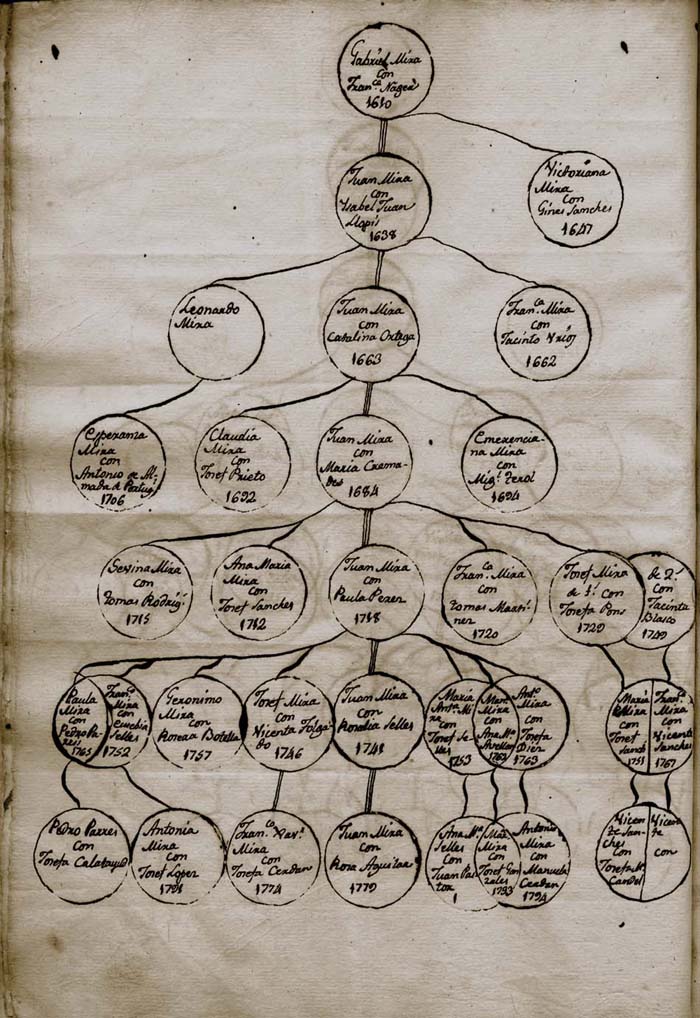 Gabriel Mira
con
Fran.ca Nager
1610
Juan Mira
con
Ysabel Juan
Llopis
1638
Victoriana
Mira
con
Gines Sanches
1647
Leonardo
Mira
Juan Mira
con
Catalina Ortega
1663
Fran.ca Mira
con
Jacinto
1662
Esperanza
Mira
con
Antonio de Al-
mada de Portug.l
1706
Claudia
Mira
con
Josef Prieto
1692
Juan Mira
con
Maria Crema-
des
1684
Emerencia-
na Mira
con
Mig.l Terol
1694
Gervina Mira
con
Tomas Rodrig.z
1715
Ana Maria
Mira
con
Josef Sanches
1712
Juan Mira
con
Paula Perez
1718
Fran.ca Mira
con
Tomas Marti-
nez
1720
Josef Mira
de 1.º con
Josefa Pons
1729
de 2.º
con
Jacinta
Blasco
1749
Paula
Mira
con
Pedro Pa-
1765
Fran.co
Mira
con
Selles
1752
Geronimo
Mira
con
Botella
1757
Josef Mira
con
Vicenta Folga-
do
1746
Juan Mira
con
Rosalia Selles
1741
Maria
Ant.a Mi-
ra
con
Josef Se-
lles
1753
Mira
con
Ana M.a
1762
Ant.o
Mira
con
Josefa
Diez
1763
Maria
Mira
con
Josef
Sanch
1751
Fran.co
Mira
con
Vicenta
Sanches
1767
Pedro Parres
con
Josefa Calatayud
Antonia
Mira
con
Josef Lopez
1791
Fran.co Xav.r
Mira
con
Josefa Cerdan
1774
Juan Mira
con
Rosa Aguilar
1779
Ana M.a
Selles
con
Juan Pas-
tor
1
Mira
con
Josef Gon-
zales
1793
Antonio
Mira
con
Manuela
Cerdan
1794
Vicen-
te San-
ches
con
Josefa M.a
Candel
Vicen-
te
con